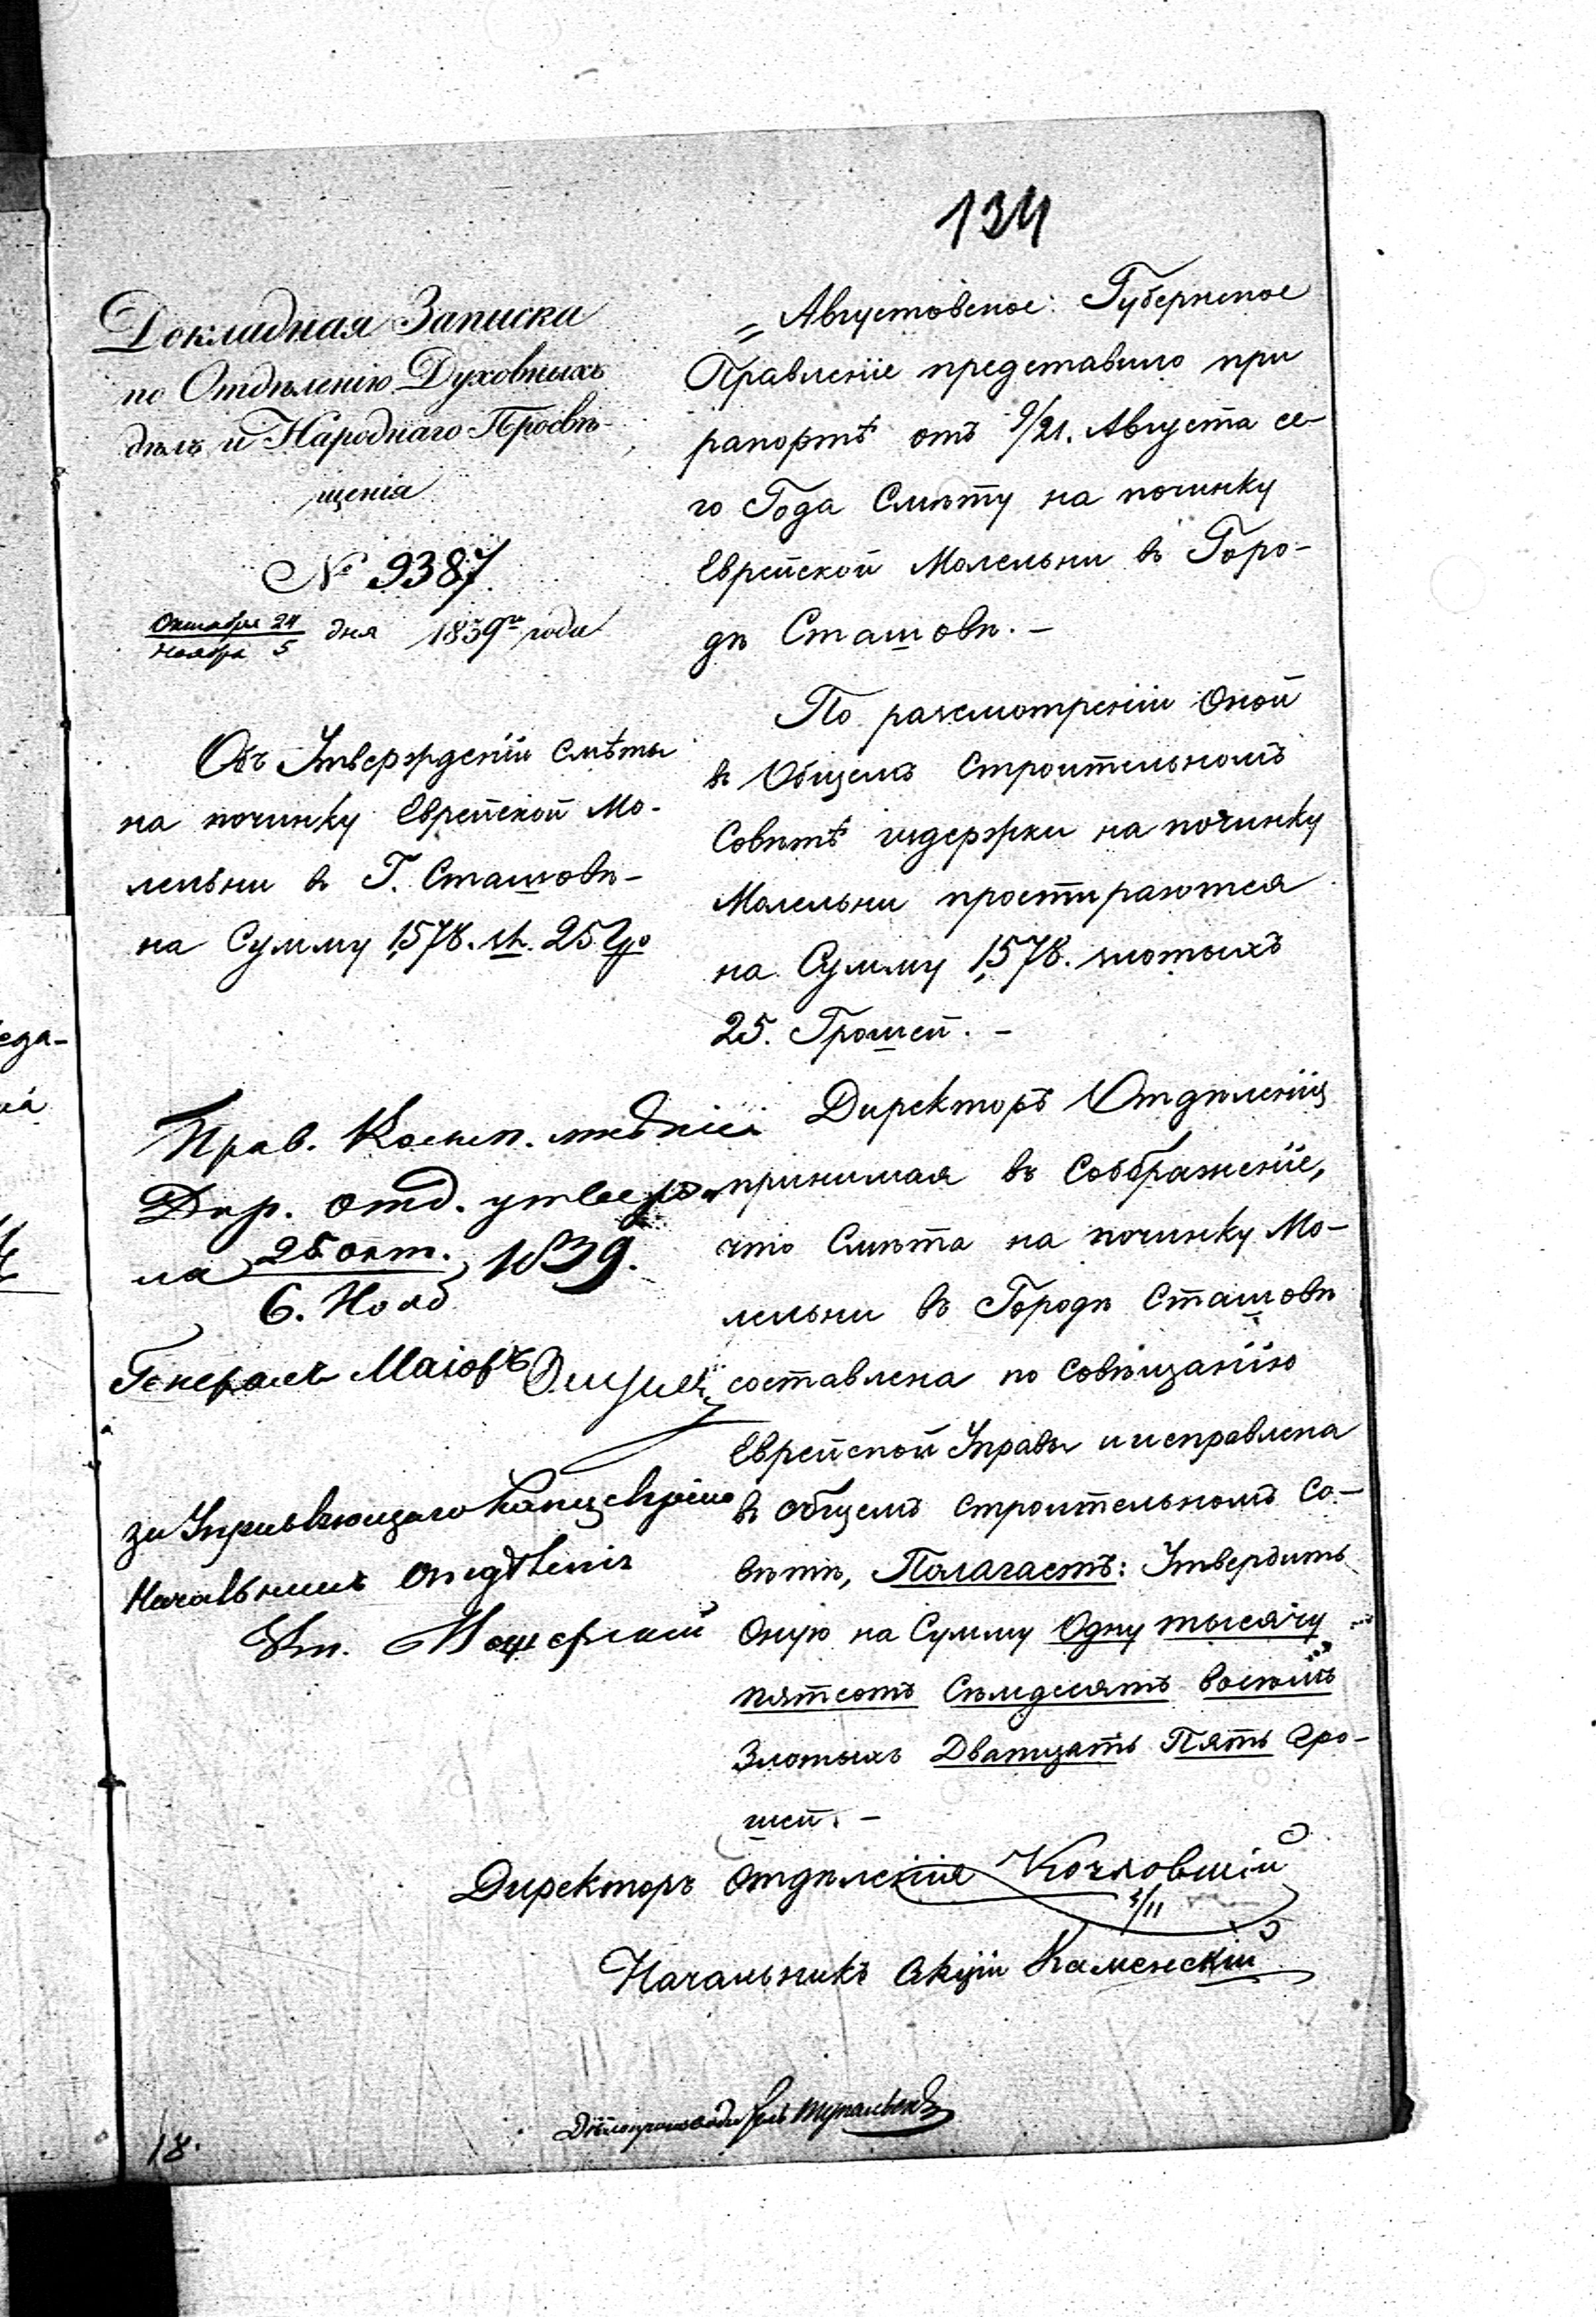 134
Докладная Записка
по Отдѣленію Духовныхъ
дѣлъ и Народнаго Просвѣ-
щенія
№ 9387
Октября 24
Ноября 5
дня 1839го года
Объ Утвержденіи Смѣты
на починку Еврейской Мо-
лельни въ Г. Сташовѣ-
на Сумму 1578. зл. 25 гро
Прав. Комм.
Дир. отд. утверди
ла 25 окт. 1839.
6. Нояб
Генералъ Маіоръ
за Управляющаго Канцеляріею
Начальникъ Отдѣленія
Кн. Мещерскій
„ Августовское Губернское
Правленіе представило при
рапортѣ отъ 9/21. Августа се-
го Года Смѣту на починку
Еврейской Молельни въ Горо-
дѣ Сташовѣ. –
По разсмотреніи Оной
въ Общемъ Строительномъ
Совѣтѣ издержки на починку
Молельни простираются
на Сумму 1578. злотыхъ
25. Грошей. –
Директоръ Отдѣленія
принимая въ Соображеніе,
что Смѣта на починку Мо-
лельни въ Городѣ Сташовѣ
составлена по Совѣщанію
Еврейской Управы и исправлена
въ общемъ строительномъ Со-
вѣтѣ, Полагаетъ: Утвердить
Оную на Сумму Одну тысячу
пятсотъ Семдесятъ восемь
Злотыхъ Дватцать Пять Гро-
шей. –
Директоръ Отдѣленія
Начальникъ Секціи Каменскій
Дѣлопроизводитель
18.